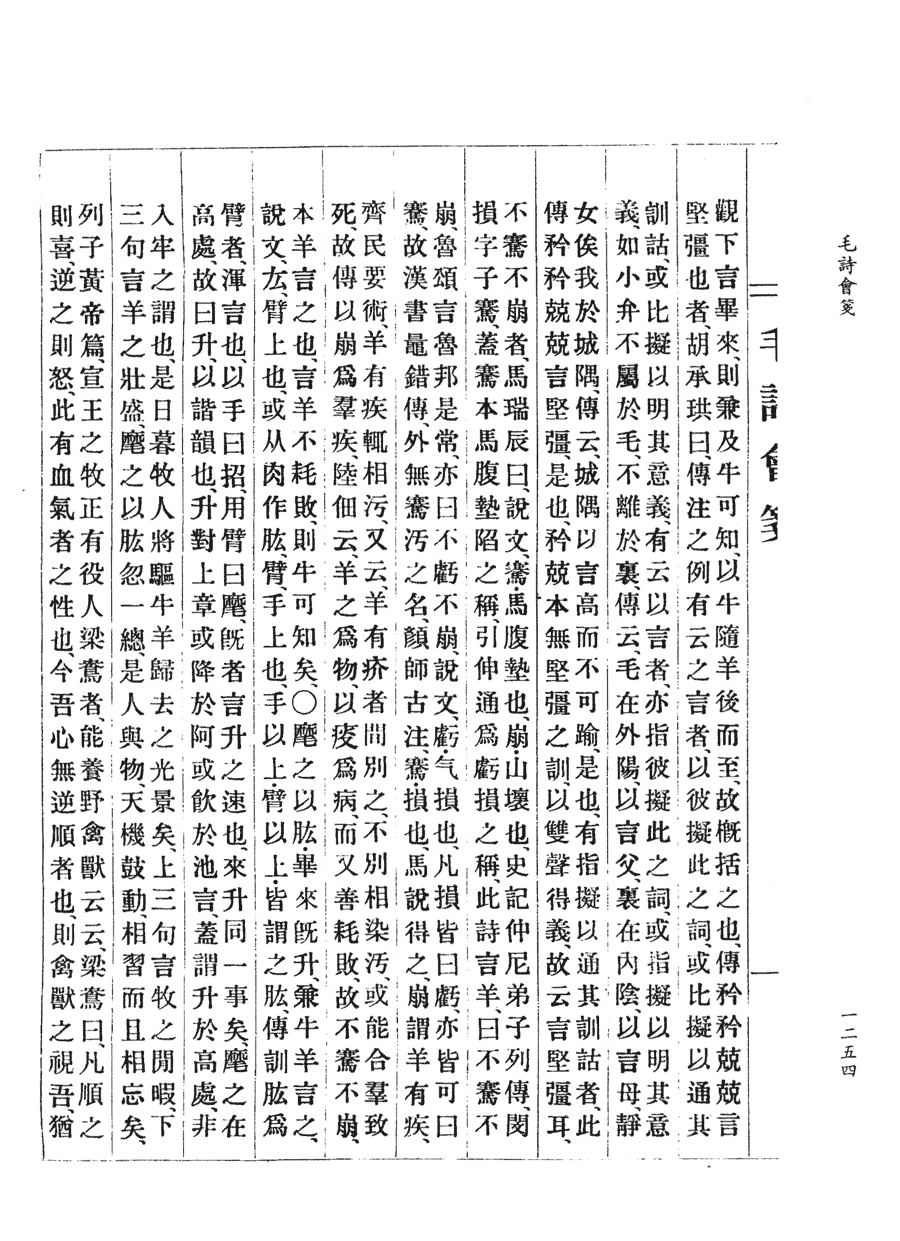 毛詩會箋
一二五四
毛詩會箋
觀下言畢來、則兼及牛可知、以牛隨羊後而至、故槪括之也、傳矜矜兢兢言
堅彊也者、胡承珙曰、傳注之例有云之言者、以彼擬此之詞、或比擬以通其
訓詁、或比擬以明其意義、有云以言者、亦指彼擬此之詞、或指擬以明其意
義、如小弁不屬於毛、不離於裏、傳云、毛在外陽、以言父、裏在內陰、以言母、靜
女俟我於城隅、傳云、城隅以言高而不可踰、是也、有指擬以通其訓詁者、此
傳矜矜兢兢言堅彊、是也、矜兢本無堅彊之訓、以雙聲得義、故云言堅彊耳、
不騫不崩者、馬瑞辰曰、說文、騫・馬腹墊也、崩・山壞也、史記仲尼弟子列傳、閔
損字子騫、蓋騫本馬腹墊陷之稱、引伸通爲虧損之稱、此詩言羊、曰不騫不
崩、魯頌言魯邦是常、亦曰不虧不崩、說文、虧・气損也、凡損皆曰虧、亦皆可曰
騫、故漢書鼂錯傳、外無騫汚之名、顏師古注、騫・損也、馬說得之、崩謂羊有疾、
齊民要術、羊有疾輒相汚、又云、羊有疥者間別之、不別相染汚、或能合羣致
死、故傳以崩爲羣疾、陸佃云、羊之爲物、以疫爲病、而又善耗敗、故不騫不崩、
本羊言之也、言羊不耗敗、則牛可知矣、〇麾之以肱・畢來旣升、兼牛羊言之、
說文、厷、臂上也、或从肉作肱、臂、手上也、手以上・臂以上・皆謂之肱、傳訓肱爲
臂者、渾言也、以手曰招、用臂曰麾、旣者言升之速也、來升同一事矣、麾之在
高處、故曰升、以諧韻也、升對上章或降於阿或飮於池言、蓋謂升於高處、非
入牢之謂也、是日暮牧人將驅牛羊歸去之光景矣、上三句言牧之閒暇、下
三句言羊之壯盛、麾之以肱忽一總、是人與物、天機鼓動、相習而且相忘矣、
列子黃帝篇、宣王之牧正有役人梁鴦者、能養野禽獸云云、梁鴦曰、凡順之
則喜、逆之則怒、此有血氣者之性也、今吾心無逆順者也、則禽獸之視吾、猶